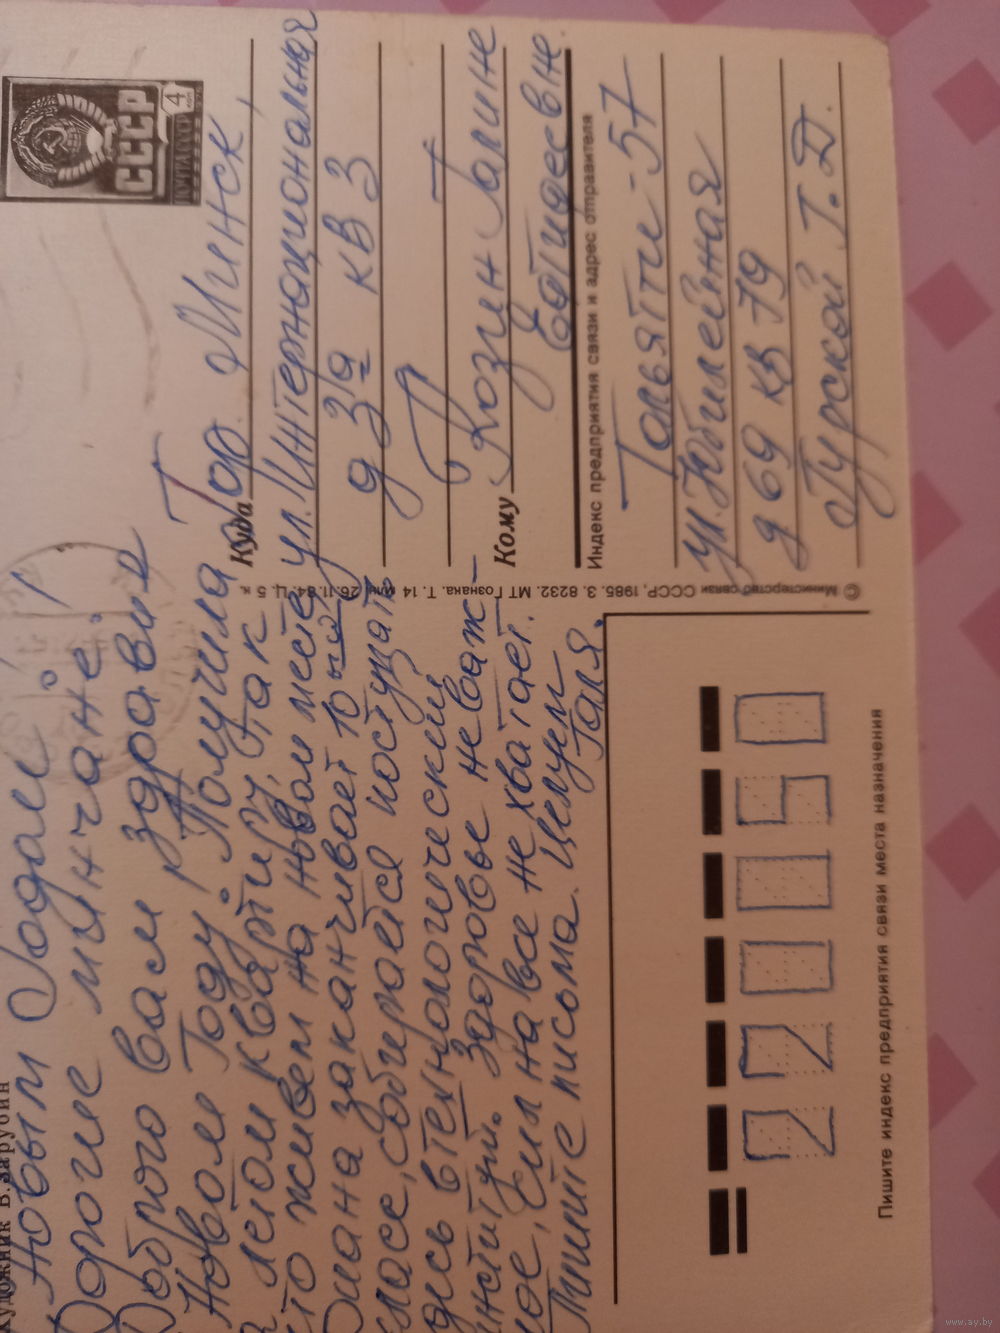 Художник В. Зарубин
Новым Годом!
Дорогие минчане!
Доброго вам здравия в
Новом Году. Получила
летом квартиру, так
что живем на новом месте.
Диана заканчивает 10ый
класс, собирается поступать
здесь в технологический
институт. Здоровье неваж-
ное, сил на все не хватает.
Пишите письма. Целуем
Галя.
ПОЧТА СССР
СССР
4
коп
Куда гор. Минск,
ул. Интернациональная
д 3а кв 3
Кому Козин Галине
Евгидеевне.
Индекс предприятия связи и адрес отправителя
Тольятти-57
ул. Юбилейная
д 69 кв 79
Гурской Т. Д.
© Министерство связи СССР, 1985. З. 8232. МТ Гознака. Т. 14 млн. 26.11.84. Ц. 5 к.
220050
Пишите индекс предприятия связи места назначения
www.ay.by